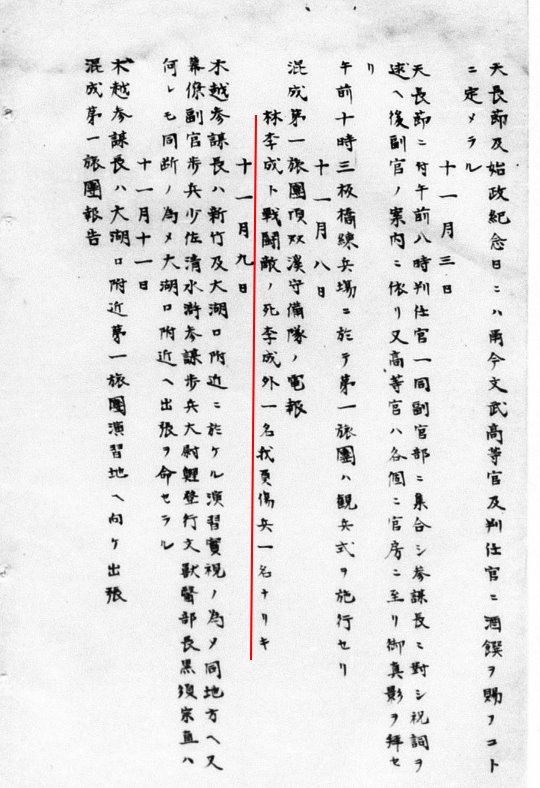 天長節及始政紀念日ニハ爾今文武高等官及判任官ニ酒饌ヲ賜フコト
ニ定メラル
十一月三日
天長節ニ付午前八時判任官一同副官部ニ集合シ参謀長ニ對シ祝詞ヲ
述ヘ後副官ノ案内ニ依リ又高等官ハ各個ニ官房ニ至リ御真影ヲ拝セ
リ
午前十時三板橋練兵場ニ於テ第一旅團ハ観兵式ヲ施行セリ
十一月八日
混成第一旅團頂双溪守備隊ノ電報
林李成ト戰鬪敵ノ死李成外一名我負傷兵一名ナリキ
十一月九日
木越参謀長ハ新竹及大湖口附近ニ於ケル演習實視ノ為メ同地方ヘ又
幕僚副官歩兵少佐清水 参謀歩兵大尉鯉登行文獣醫部長黒須宗直ハ
何レモ同断ノ為メ大湖口附近ヘ出張ヲ命セラル
十一月十一日
木越参謀長ハ大湖口附近第一旅團演習地ヘ向ケ出張
混成第一旅團報告